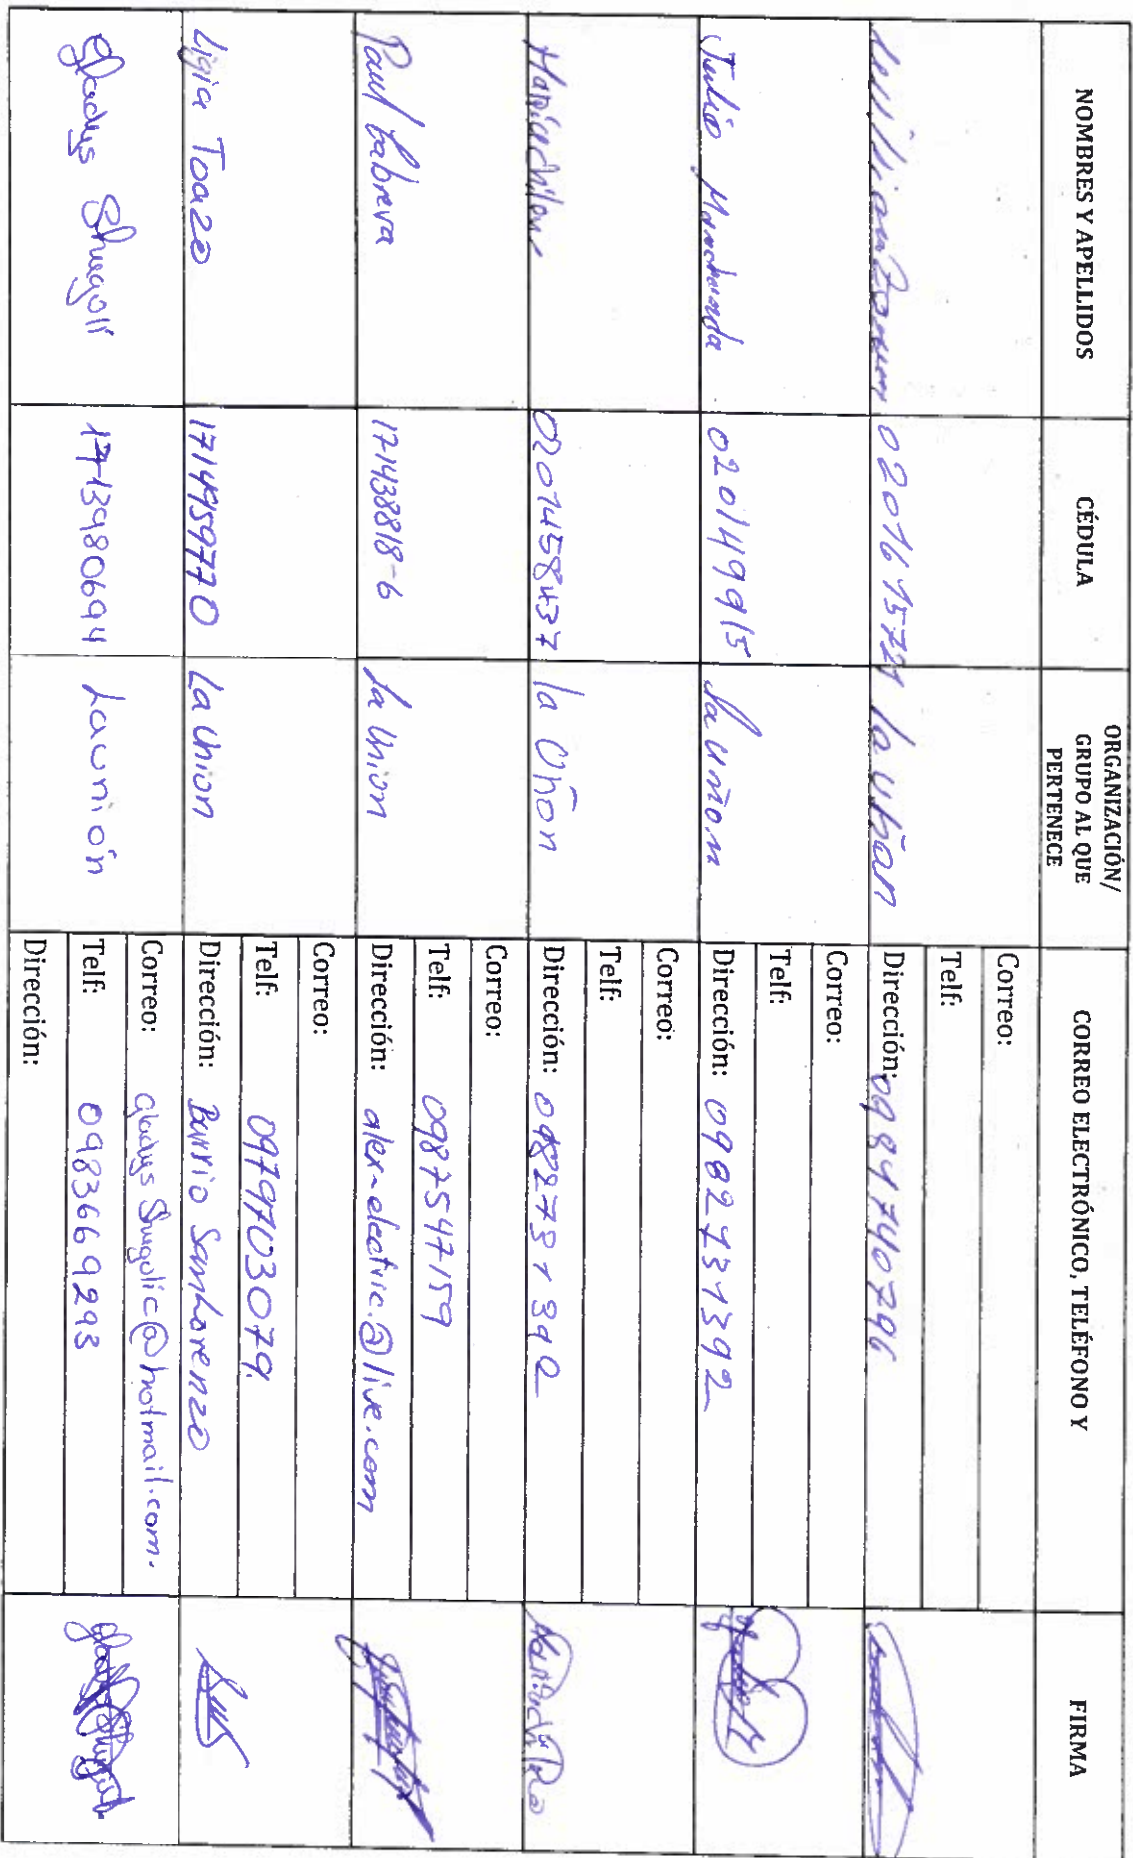 NOMBRES Y APELLIDOS
CÉDULA
ORGANIZACIÓN/
GRUPO AL QUE
PERTENECE
CORREO ELECTRÓNICO, TELÉFONO Y
FIRMA
la uñon
Correo:
Telf:
Dirección: 0984740796
Julio
020149915
la uñon
Correo:
Telf:
Dirección: 0982431392
0201458437
la Oñon
Correo:
Telf:
Dirección:
Paul Cabrera
171438818-6
La Union
Correo:
Telf: 0987547159
Dirección: alex-electric.@live.com
Ligia Toazo
1714959770
La Union
Correo:
Telf: 0979703079.
Dirección: Barrio San Lorenzo
Gladys Shugolí
1713980694
La unión
Correo: gladys Shugolic@hotmail.com.
Telf: 0983669293
Dirección: